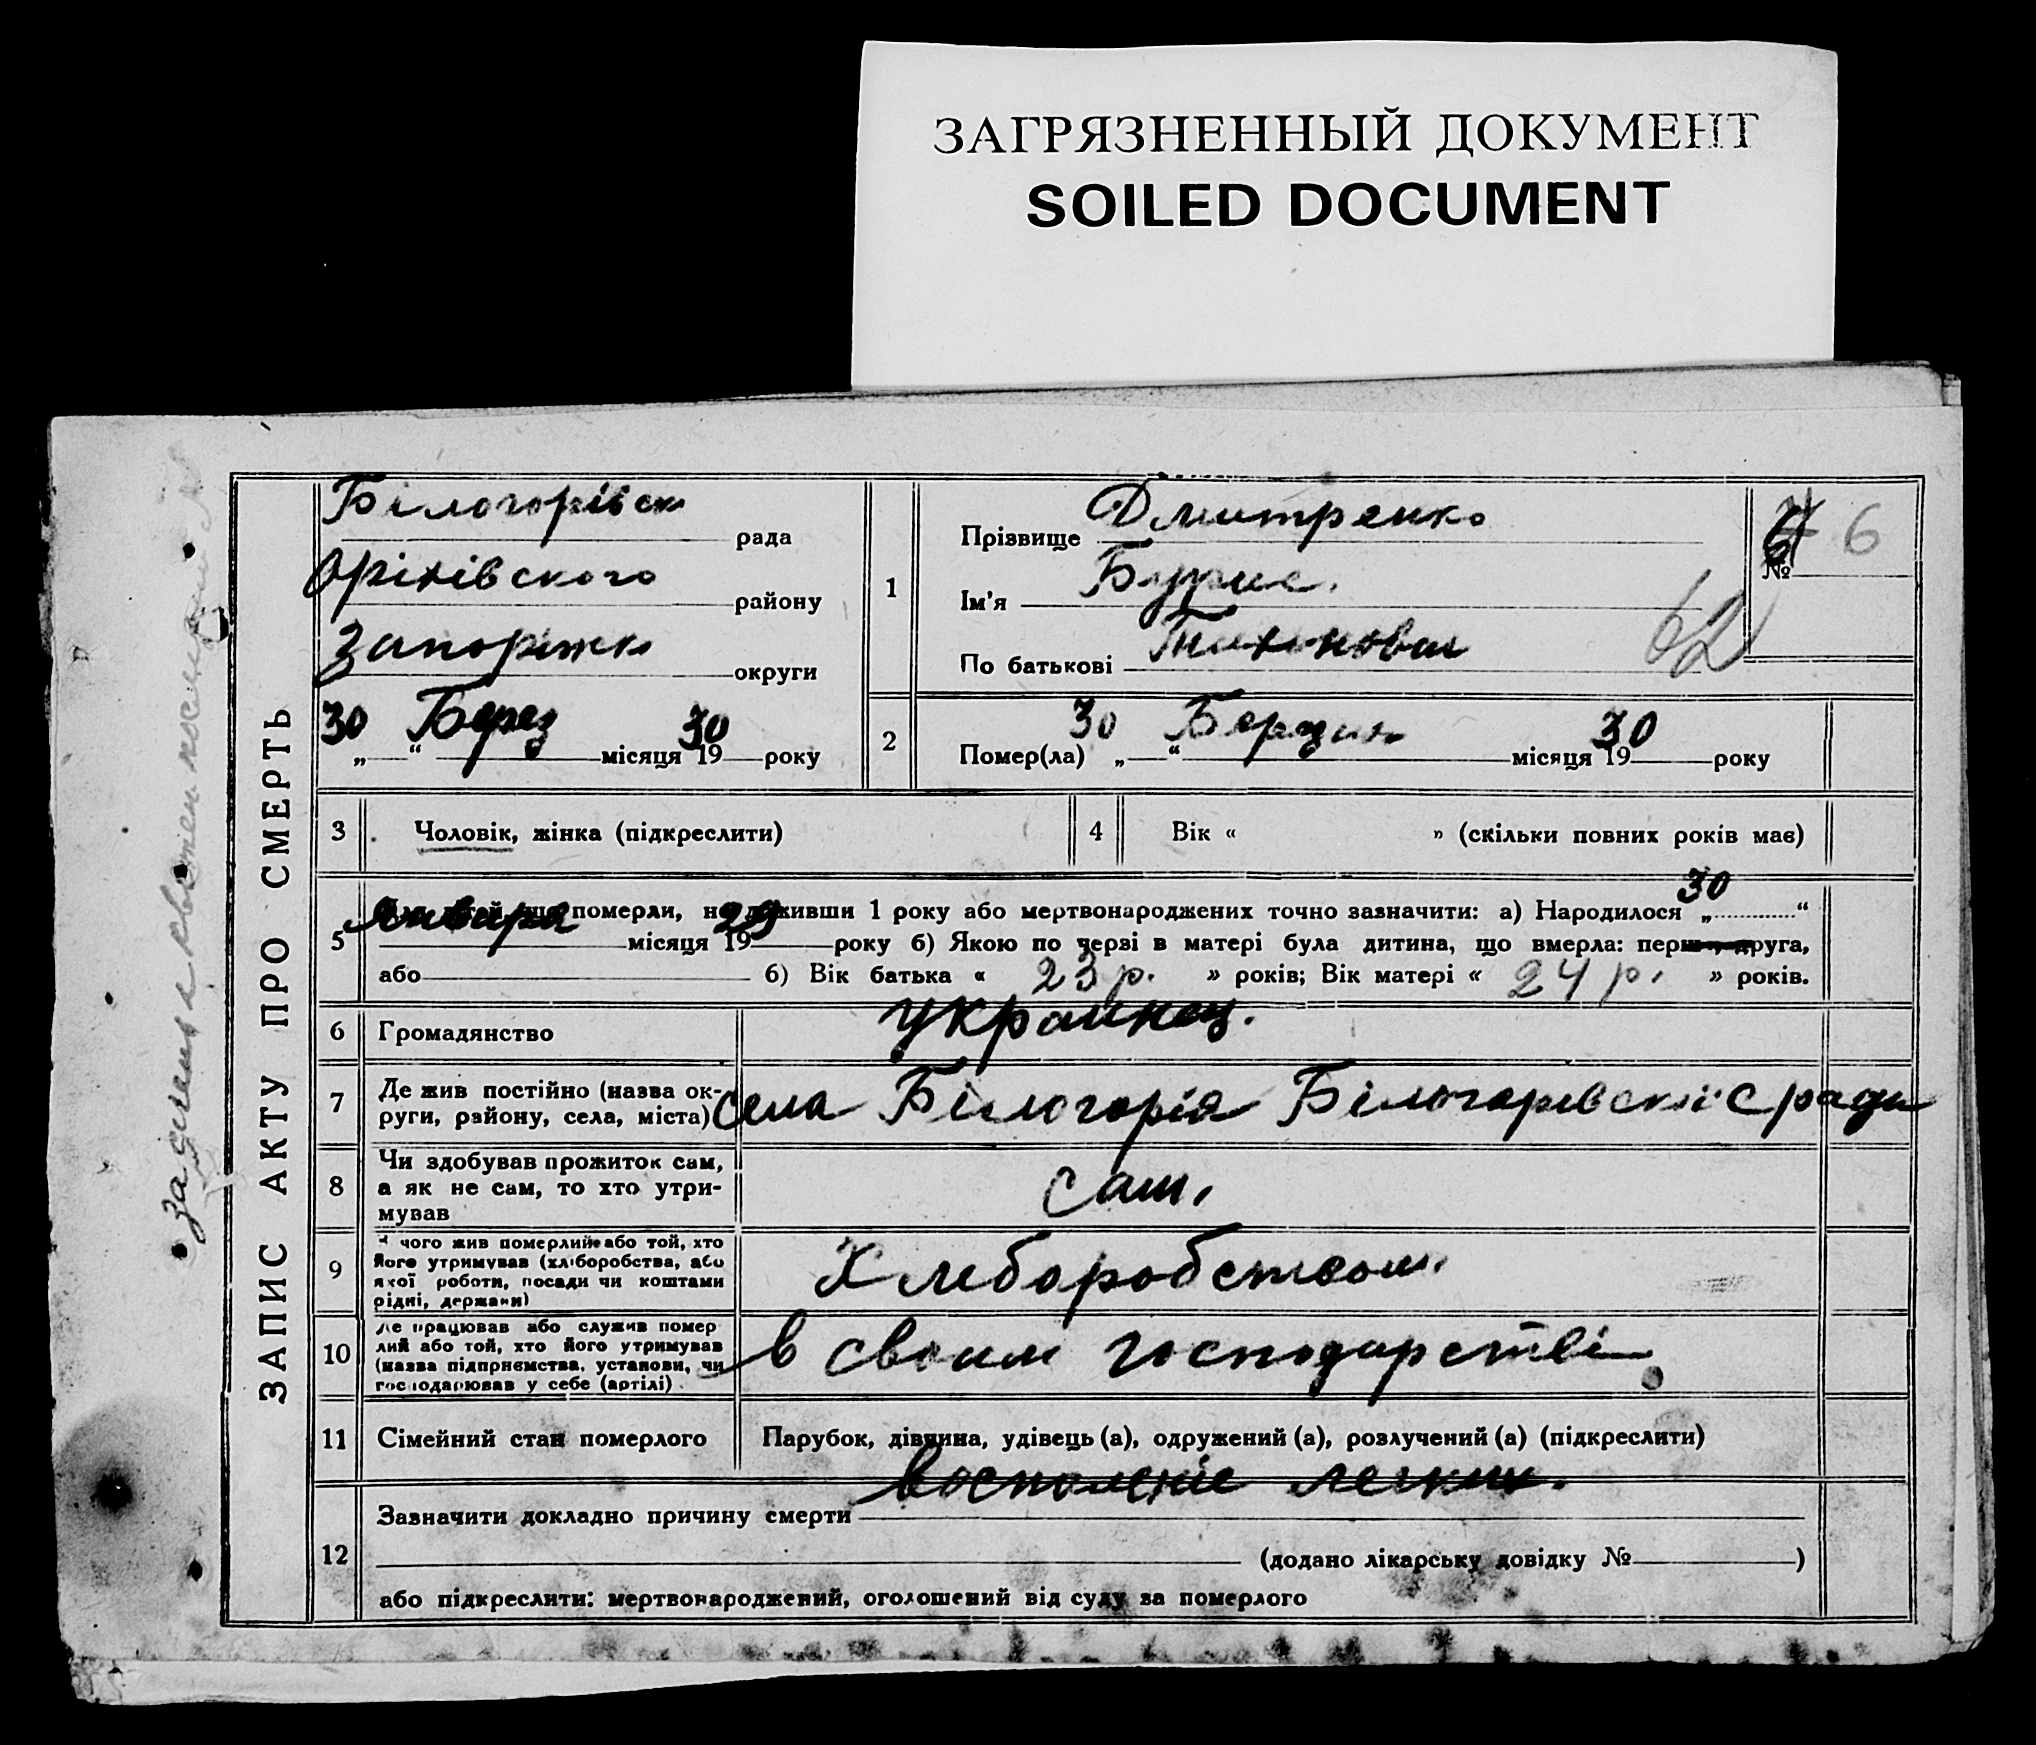 ЗАГРЯЗНЕННЫЙ ДОКУМЕНТ
SOILED DOCUMENT
ЗАПИС АКТУ ПРО СМЕРТЬ
Білогорівск рада
Оріхівского району
Запоріжк округи
30 „ “ Берез місяця 1930 року
1
Прізвище Дмитренко
Ім'я
По батькові
№ 6
62
2
Помер(ла) „30“ місяця 1930 року
3 Чоловік, жінка (підкреслити)
4 Вік « » (скільки повних років має)
5 померли, не доживши 1 року або мертвонароджених точно зазначити: а) Народилося „30“
Января місяця 1929 року б) Якою по черві в матері була дитина, що вмерла: перша, друга,
або 6) Вік батька « 23 р. » років; Вік матері « 24 р. » років.
6 Громадянство украинец.
7 Де жив постійно (назва ок-
руги, району, села, міста) села Білогорія Білогорівскої с ради
8 Чи здобував прожиток сам,
а як не сам, то хто утри-
мував
сам.
9 З чого жив померлий або той, хто
його утримував (хліборобства, або
якої роботи, посади чи коштами
рідні, держави)
Хлеборобством.
10 Де працював або служив помер
лий або той, хто його утримував
(назва підприємства, установи, чи
господарював у себе (артілі)
в своим господарстві
11 Сімейний стан померлого Парубок, дівчина, удівець (а), одружений (а), розлучений (а) (підкреслити)
12 Зазначити докладно причину смерти восполеніе легких.
(додано лікарську довідку № )
або підкреслити: мертвонароджений, оголошений від суду за померлого